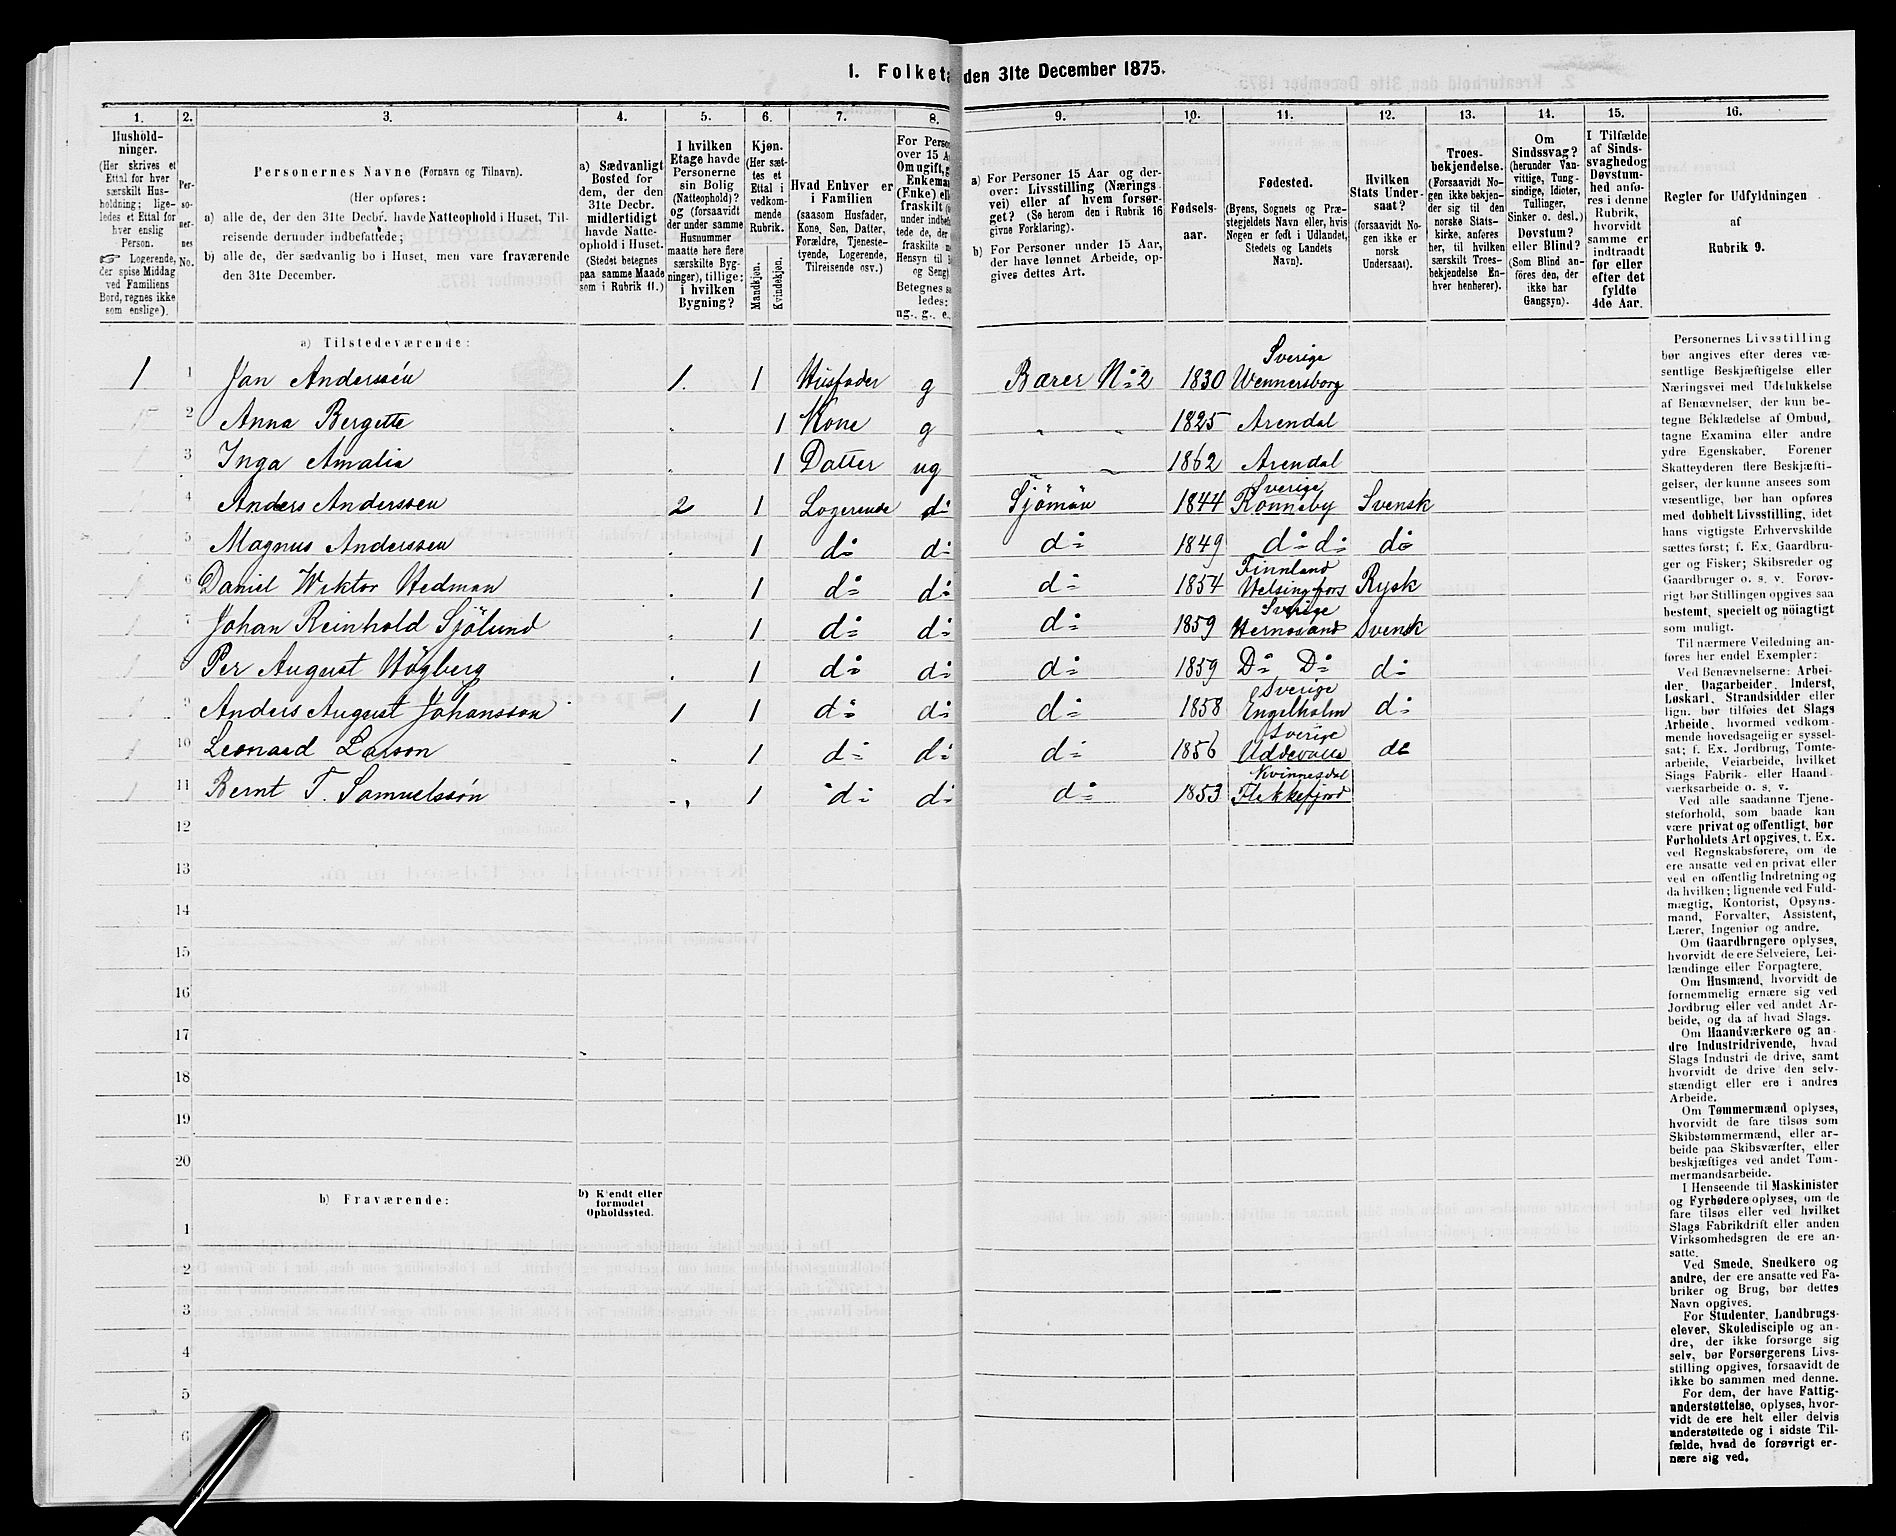 1. Folketæ den 31te December 1875.
1. 2. 3. 4. 5. 6. 7. 8. 9. 10. 11. 12. 13. 14. 15. 16.
Hushold-
ninger.
(Her skrives et
Ettal for hver
særskilt Hus-
holdning; lige-
ledes et Ettal for
hver enslig
Person.
☞ Logerende,
der spise Middag
ved Familiens
Bord, regnes ikke
som enslige).
Per-
so-
ner-
nes
No.
Personernes Navne (Fornavn og Tilnavn).
(Her opføres:
a) alle de, der den 31te Decbr. havde Natteophold i Huset, Til-
reisende derunder indbefattede;
b) alle de, der sædvanlig bo i Huset, men vare fraværende
den 31te December.
a) Sædvanligt
Bosted for
dem, der den
31te Decbr.
midlertidigt
havde Natte-
ophold i Huset.
(Stedet betegnes
paa samme Maade
som i Rubrik 11.)
I hvilken
Etage havde
Personerne
sin Bolig
(Natteophold)?
og (forsaavidt
der under samme
Husnummer
maatte høre flere
særskilte Byg-
ninger), tillige:
i hvilken
Bygning?
Kjøn.
(Her sæt-
tes et
Ettal i
vedkom-
mende
Rubrik.
Mandkjøn.
Kvindekjøn.
Hvad Enhver er
i Familien
(saasom Husfader,
Kone, Søn, Datter,
Forældre, Tjeneste-
tyende, Logerende,
Tilreisende osv.)
For Perso
over 15 A
Om ugift, g
Enkema
(Enke) ell
fraskilt (
under indbe
tede de, der
fraskilte
Hensyn til
og Seng)
Betegnes sa
ledes:
ug., g., e.,
a) For Personer 15 Aar og der-
over: Livsstilling (Nærings
vei) eller af hvem forsør-
get? (Se herom den i Rubrik 16
givne Forklaring).
b) For Personer under 15 Aar,
der have lønnet Arbeide, op-
gives dettes Art.
Fødsels-
aar.
Fødested.
(Byens, Sognets og Præ-
stegjeldets Navn eller, hvis
Nogen er født i Udlandet,
Stedets og Landets
Navn).
Hvilken
Stats Under-
saat?
(forsaavidt No-
gen ikke er
norsk
Undersaat).
Troes-
bekjendelse.
(Forsaavidt No-
gen ikke bekjen-
der sig til den
norske Stats-
kirke, anføres
her, til hvilken
særskilt Troes-
bekjendelse En-
hver henhører).
Om
Sindssvag?
(herunder Van-
vittige, Tung-
sindige, Idioter,
Tullinger,
Sinker o. desl.)
Døvstum?
eller Blind?
(Som Blind an-
føres den, der
ikke har
Gangsyn).
I Tilfælde
af Sinds-
svaghedog
Døvstum-
hed anfø-
res i denne
Rubrik,
hvorvidt
samme er
indtraadt
før eller
efter det
fyldte
4de Aar.
Regler for Udfyldningen
af
Rubrik 9.
a) Tilstedeværende:
1 1 Jan Anderssén 1. 1 Husfader g Bærer No 2 1830 Sverige Wennersborg
2 Anna Bergitte 1 Kone g 1825 Arendal
3 Inga Amalia 1 Datter ug 1862 Arendal
4 Anders Anderssen 2 1 Logerende do Sjömän 1844 Sverige Ronneby Svensk
5 Magnus Anderssen 1 do do do 1849 do do do
6 Daniel Wiktor Hedman 1 do do do 1854 Finnland Helsingfors Rysk
7 Johan Reinhold Sjölund 1 do do do 1859 Sverige Hernosand Svensk
8 Per August Högberg 1 do do do 1859 Do Do do
9 Anders August Johansson 1 1 do do do 1858 Sverige Engelholm do
10 Leonard Larson 1 do do do 1856 Sverige Uddevalla do
11 Bernt T. Samuelssón 1 do do do 1853 Kvinnesdal Flekkefjord
12
13
14
15
16
17
18
19
20
b) Fraværende: b) Kjendt eller
formodet
Opholdssted.
1
2
3
4
5
6
Personernes Livsstilling
bør angives efter deres væ-
sentlige Beskjæftigelse eller
Næringsvei med Udelukkelse
af Benævnelser, der kun be-
tegne Beklædelse af Ombud,
tagne Examina eller andre
ydre Egenskaber. Forener
Skatteyderen flere Beskjæfti-
gelser, der kunne ansees som
væsentlige, bør han opføres
med dobbelt Livsstilling, idet
hans vigtigste Erhvervskilde
sættes først; f. Ex. Gaardbru-
ger og Fisker; Skibsreder og
Gaardbruger o. s. v. Forøv-
rigt bør Stillingen opgives saa
bestemt, specielt og nöiagtigt
som muligt.
Til nærmere Veiledning an-
føres her endel Exempler:
Ved Benævnelserne: Arbei-
der, Dagarbeider, Inderst,
Løskarl, Strandsidder eller
lign. bør tilføies det Slags
Arbeide, hvormed vedkom-
mende hovedsagelig er syssel-
sat; f. Ex. Jordbrug, Tomte-
arbeide, Veiarbeide, hvilket
Slags Fabrik- eller Haand-
værksarbeide o. s. v.
Ved alle saadanne Tjene-
steforhold, som baade kan
være privat og offentligt, bør
Forholdets Art opgives, t. Ex.
ved Regnskabsførere, om de
ere ansatte ved en privat eller
ved en offentlig Indretning og
da hvilken; lignende ved Fuld-
mægtig, Kontorist, Opsyns-
mand, Forvalter, Assistent,
Lærer, Ingeniør og andre.
Om Gaardbrugere oplyses,
hvorvidt de ere Selveiere, Lei-
lændinge eller Forpagtere.
Om Husmænd, hvorvidt de
fornemmelig ernære sig ved
Jordbrug eller ved andet Ar-
beide, og da af hvad Slags.
Om Haandværkere og an-
dre Industridrivende, hvad
Slags Industri de drive, samt
hvorvidt de drive den selv-
stændigt eller ere i andres
Arbeide.
Om Tømmermænd oplyses,
hvorvidt de fare tilsøs som
Skibstømmermænd, eller ar-
beide paa Skibsværfter, eller
beskjæftiges ved andet Tøm-
mermandsarbeide.
I Henseende til Maskinister
og Fyrbødere oplyses, om de
fare tilsøs eller ved hvilket
Slags Fabrikdrift eller anden
Virksomhedsgren de ere an-
satte.
Ved Smede, Snedkere og
andre, der ere ansatte ved Fa-
briker og Brug, bør dettes
Navn opgives.
For Studenter, Landbrugs-
elever, Skoledisciple og an-
dre, der ikke forsørge sig
selv, bør Forsørgerens Livs-
stilling opgives, forsaavidt de
ikke bo sammen med denne.
For dem, der have Fattig-
understøttelse, oplyses, hvor-
vidt de ere helt eller delvis
understøttede og i sidste Til-
fælde, hvad de forøvrigt er-
nære sig ved.